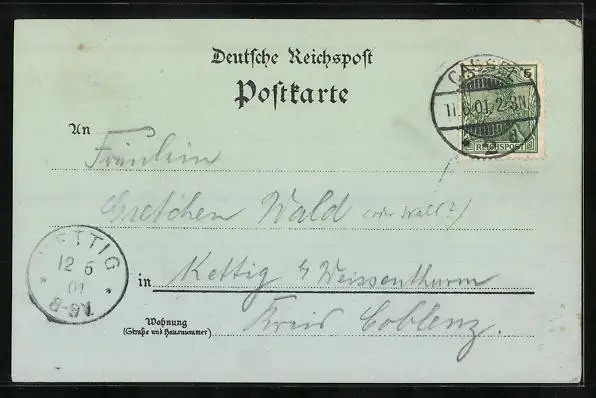 Deutsche Reichspost
Postkarte
CASSEL
11.6.01. 2-3N.
* 2
5
REICHSPOST
An
Fräulein
Gretchen Wald (oder Wall?)
KETTIG
12 6
01
* *
8-9V.
in Kettig b/ Weissenthurm
Wohnung
(Straße und Hausnummer)
Kreis Coblenz.